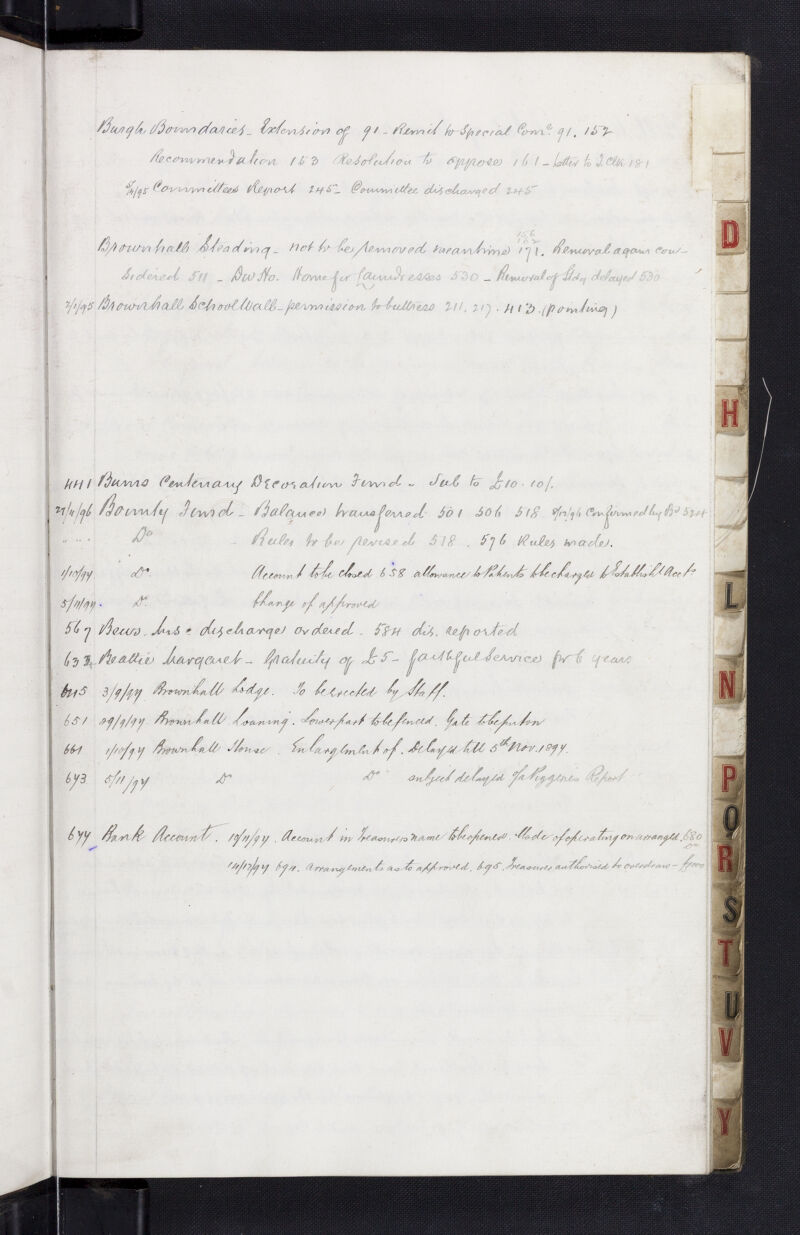 Burgh Boundaries - Extension of 91 - Remit to Special Comᵉ 91. 152
Recommendation 153 Resolution to oppose 161 - Letter to T. Clk 181
Committees Report 245 - Committee discharged 245
156
162
Brownhall Steading - not to be removed meantime 171. Removal again con-
sidered 511 - Dw Ho. Home for Laundresses 530 - Removal of Stdg delayed 530
2/1/95 Brownhall School Wall - permission to buttress 211. 217. 413. (pointing)
441 Burns Centenary Decoration Fund - Sub to £10.10/.
27/11/96 Bounty Fund - Balance transferred 501 506 518 confirmed by Bd 524
" " Do - Rules to be revised 518. 596 Rules made.
1/10/97 Do Account to be closed 658 allowance to Patients to be charged to Establisht Acct
5/11/97. Do Change of approved
567 Bews. Mrs - discharge ordered. 584 dis. reported
633 Beattie Margaret - Gratuity of £5 - faithful Service for 6 years
645 3/9/97 Brownhall Lodge. To be erected by Staff.
651 29/9/97 Brownhall Loaning. Lower part to be fenced. Gate to be put on
661 1/10/97 Brownhall House. Enlargement of. Delayed till 5th Nov. 1897.
673 5/11/97 Do Do subject delayed Report
677 Bank Account. 19/11/97. Account in Treasurers name to be opened. Mode of operating on arranged. 680
14/12/97 694. Arrangements as to approved. 695. Treasurer authorised to overdraw - £7000
D
H
L
N
P
Q
R
S
T
U
V
Y